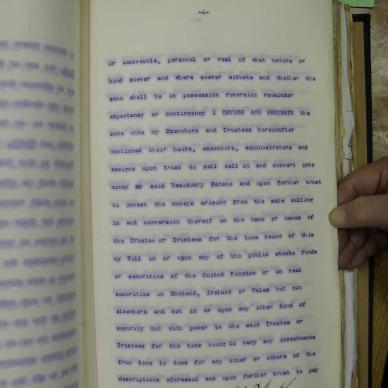 -4-
or immovable, personal or real of what nature or
kind soever and where soever situate and whether the
same shall be in possession reversion remainder
expectancy or contingency I DEVISE AND BEQUEATH the
same unto my Executors and Trustees hereinafter
mentioned their heirs, executors, administrators and
assigns upon trust to sell call in and convert into
money my said Residuary Estate and upon further trust
to invest the moneys arising from the sale calling
in and conversion thereof in the name or names of
the Trustee or Trustees for the time being of this
my Will in or upon any of the public stocks funds
or securities of the United Kingdom or on real
securities in England, Ireland or Wales but not
elsewhere and not in or upon any other kind of
security but with power to the said Trustee or
Trustees for the time being to vary any investments
from time to time for any other or others of the
descriptions aforesaid and upon further trust to pay